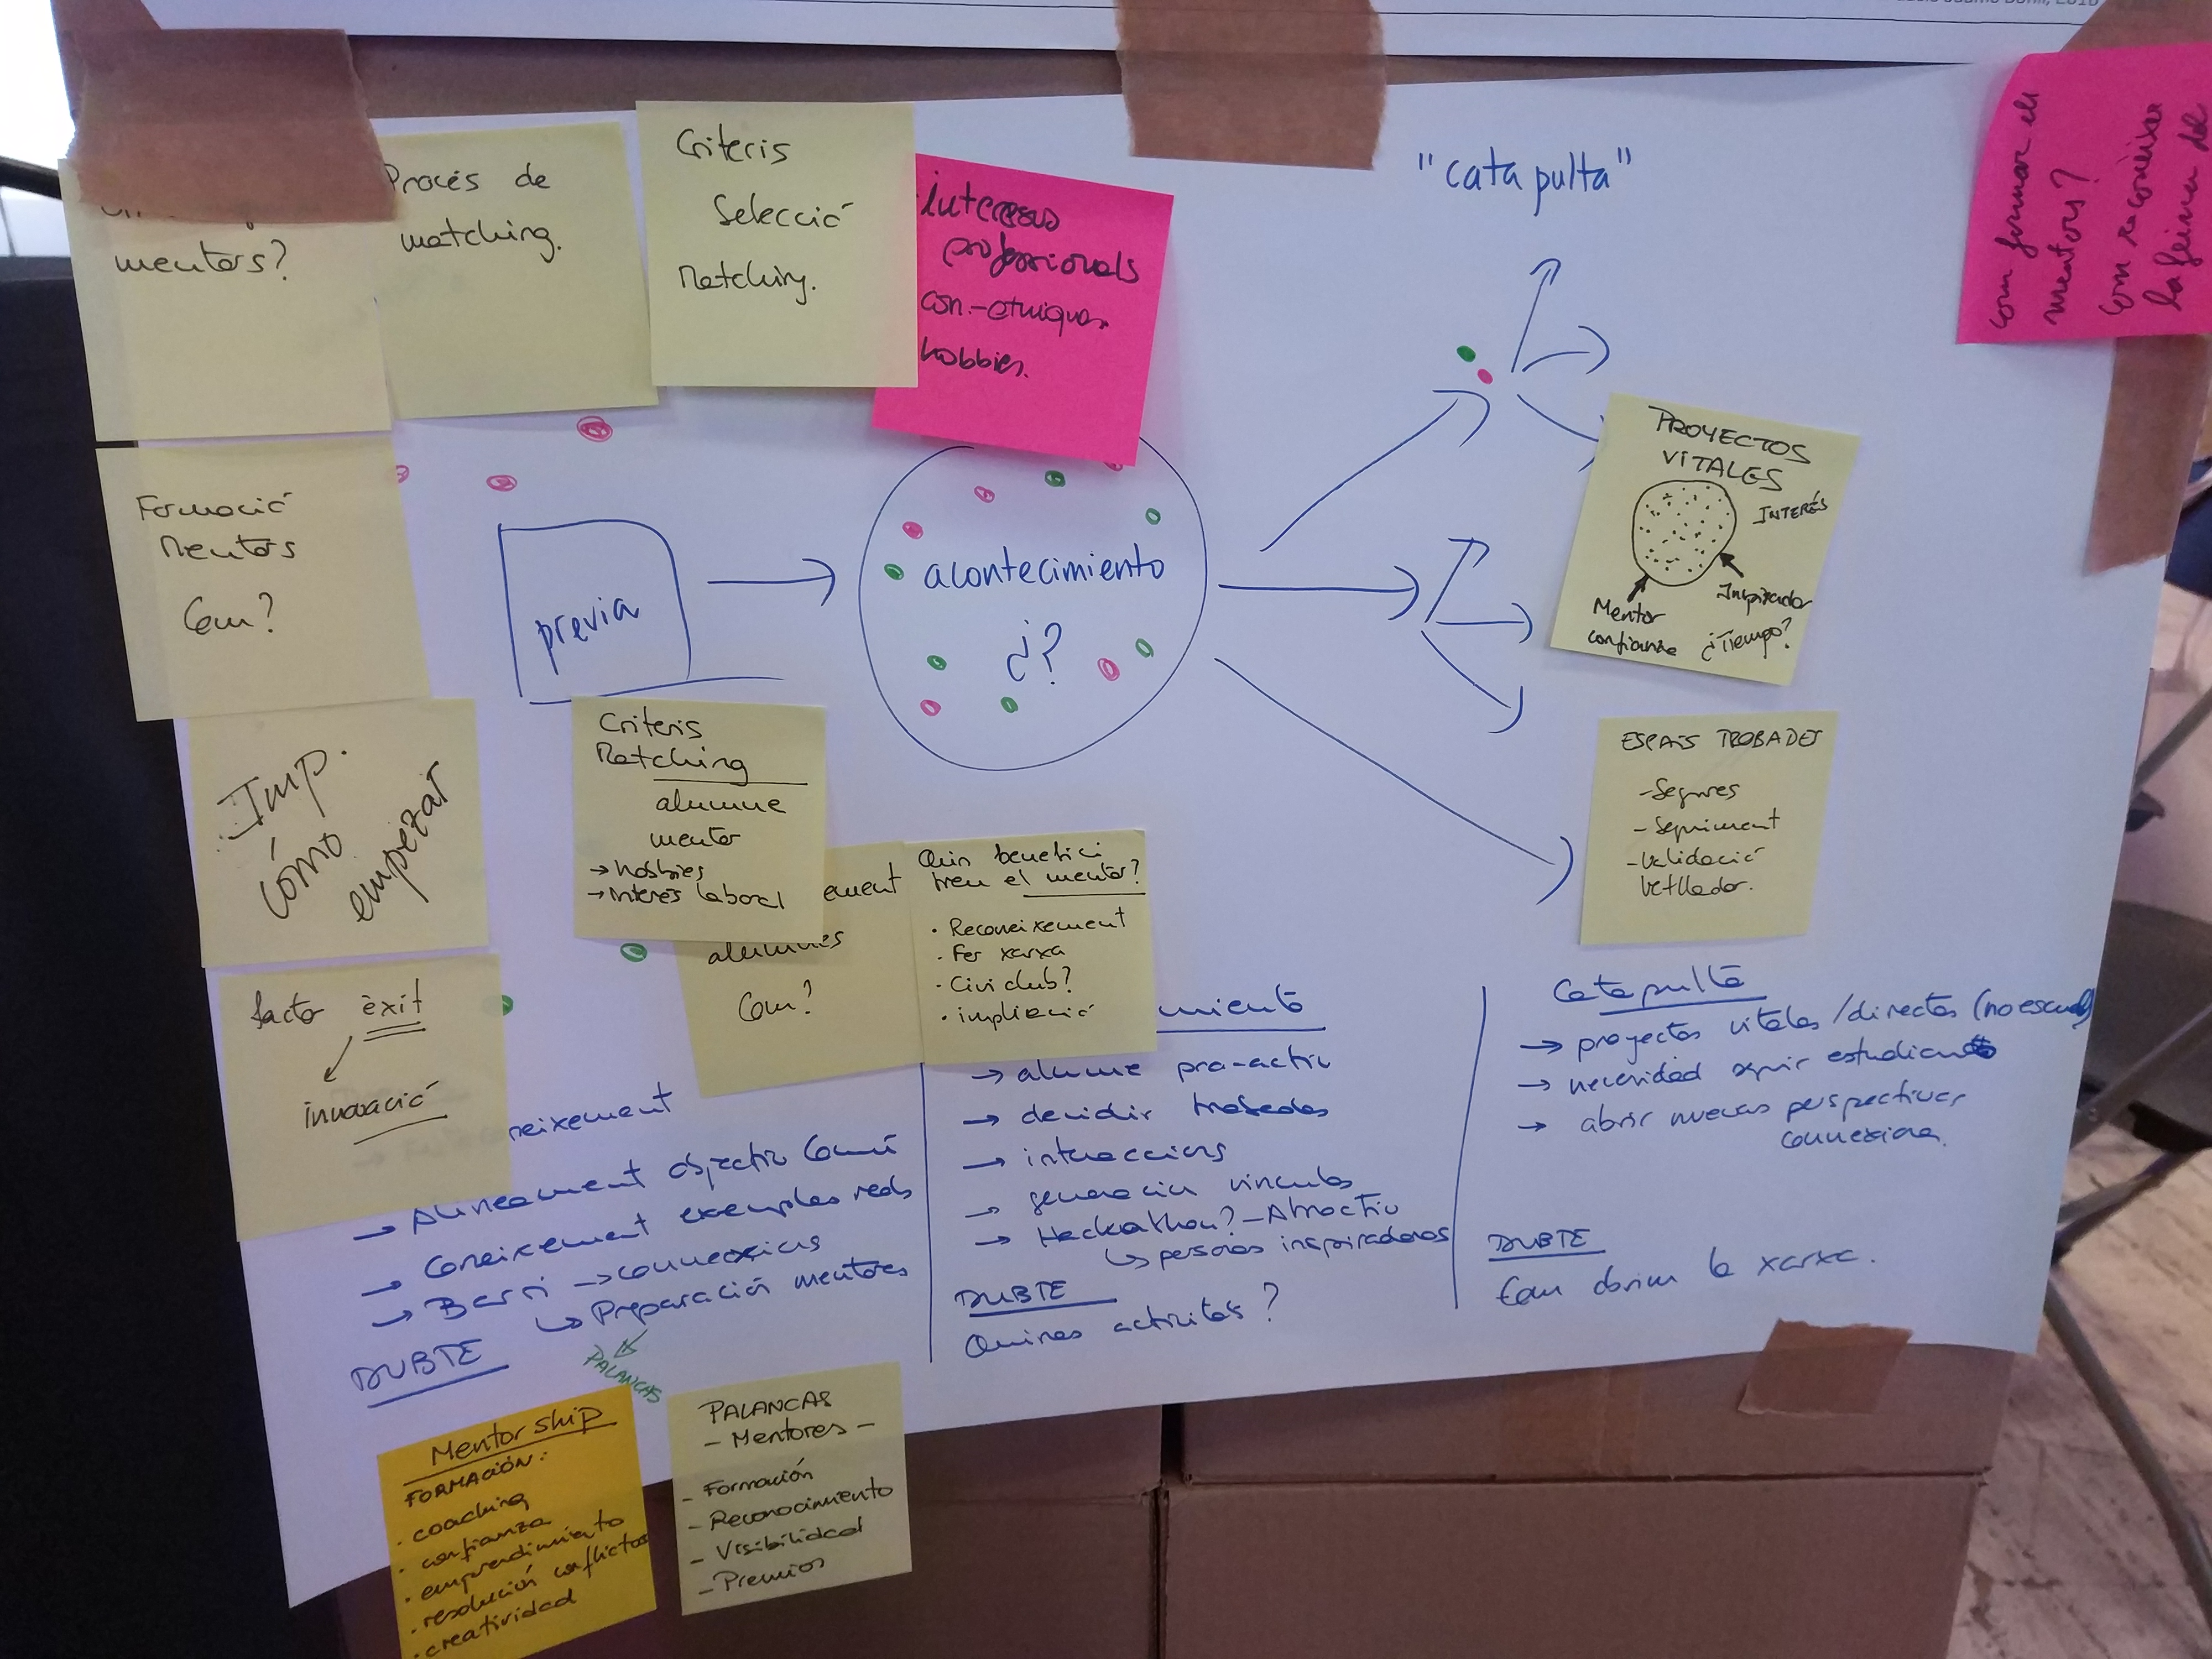 mentors?
Procés de
matching.
Criteris
Selecció
Matching.
interesos
professionals
hobbies.
"catapulta"
com formar els
mentors?
com reconèixer
la feina de
Formació
Mentors
Com?
previa
acontecimiento
¿?
PROYECTOS
VITALES
INTERÉS
Mentor
confianza
Inspirador
¿Tiempo?
Imp.
cómo
empezar
Criteris
Matching
alumne
mentor
→ hobbies
→ Interès laboral
ement
alumnes
Com?
Quin benefici
treu el mentor?
• Reconeixement
• Fer xarxa
• Civiclub?
• implicació
ESPAIS TROBADES
- Segures
- Seguiment
- Validació
vetllador.
factor èxit
innovació
neixement
→ Alineament objectiu Comú
→ Coneixement exemples reals
→ Barri → connexions
↳ Preparación mentores
DUBTE
PALANCAS
miento
→ alumne pro-actiu
→ decidir trobades
→ interaccions
→ generación vínculos
→ Hackathon? - Atractiu
↳ persones inspiradores
DUBTE
Quines activitats?
Catapulta
→ proyectos vitales / directos
→ necesidad seguir estudiando
→ abrir nuevas perspectivas
connexions.
DUBTE
Com obrim la xarxa.
Mentorship
FORMACIÓN:
• coaching
• confianza
• emprendimiento
• resolución conflictos
• creatividad
PALANCAS
- Mentores -
- Formación
- Reconocimiento
- Visibilidad
- Premios